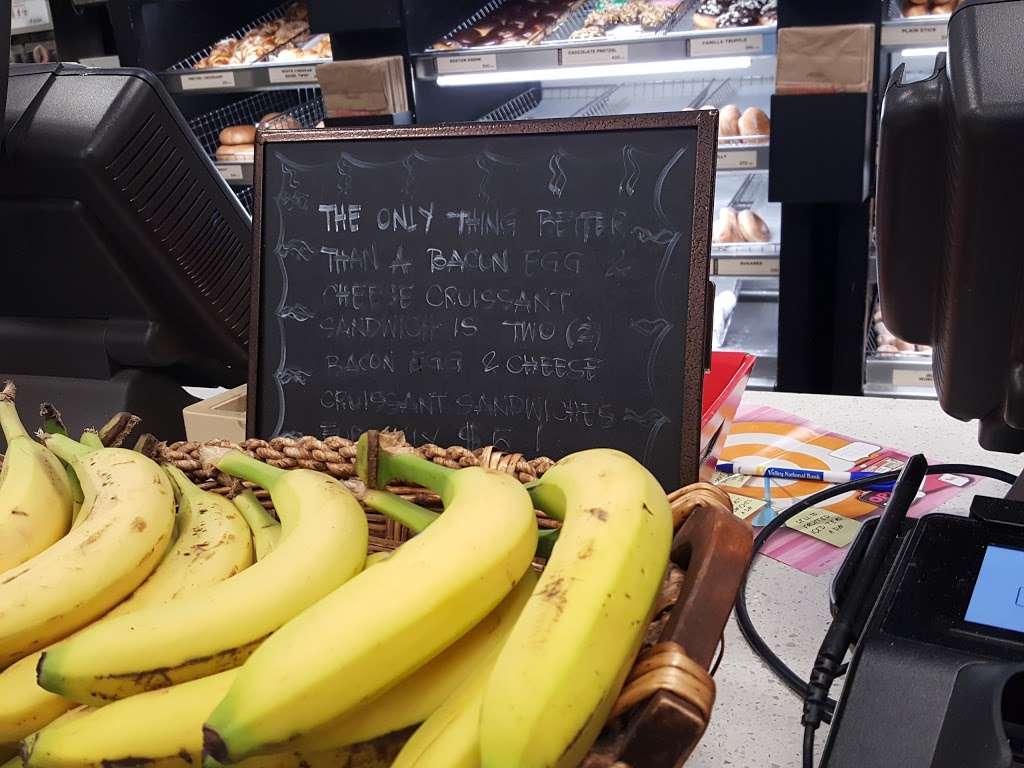 THE ONLY THING BETTER
THAN A BACON EGG &
CHEESE CRUISSANT
SANDWICH IS TWO (2)
BACON EGG & CHEESE
CRUISSANT SANDWICHES
$5!
BOSTON KREME
CHOCOLATE PRETZEL
VANILLA TRUFFLE
PLAIN STICK
SUGARED
Valley National Bank